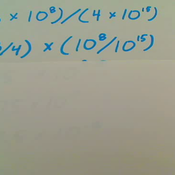 × 10⁸)/(4 × 10¹⁵)
/4) × (10⁸/10¹⁵)